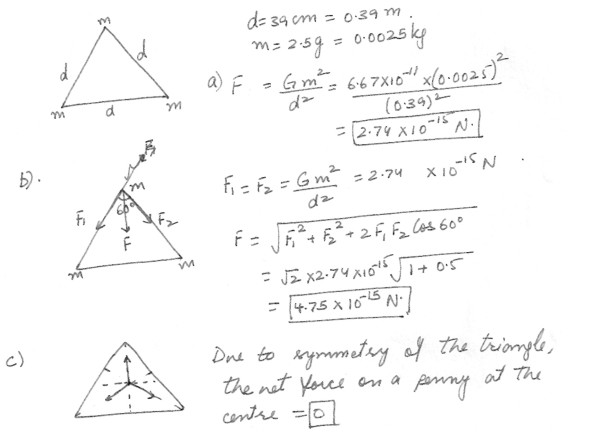 d = 39 cm = 0.39 m.
m = 2.5g = 0.0025 kg
m
d
d
m
d
m
a) F = Gm²/d² = 6.67×10⁻¹¹ × (0.0025)²/(0.39)²
= 2.74 × 10⁻¹⁵ N.
b).
m
60°
F₁
F₂
F
m
m
F₁ = F₂ = Gm²/d² = 2.74 × 10⁻¹⁵ N.
F = √F₁² + F₂² + 2F₁F₂ Cos 60°
= √2 × 2.74 × 10⁻¹⁵ √1 + 0.5
= 4.75 × 10⁻¹⁵ N.
c)
Due to symmetry of the triangle,
the net force on a penny at the
centre = 0